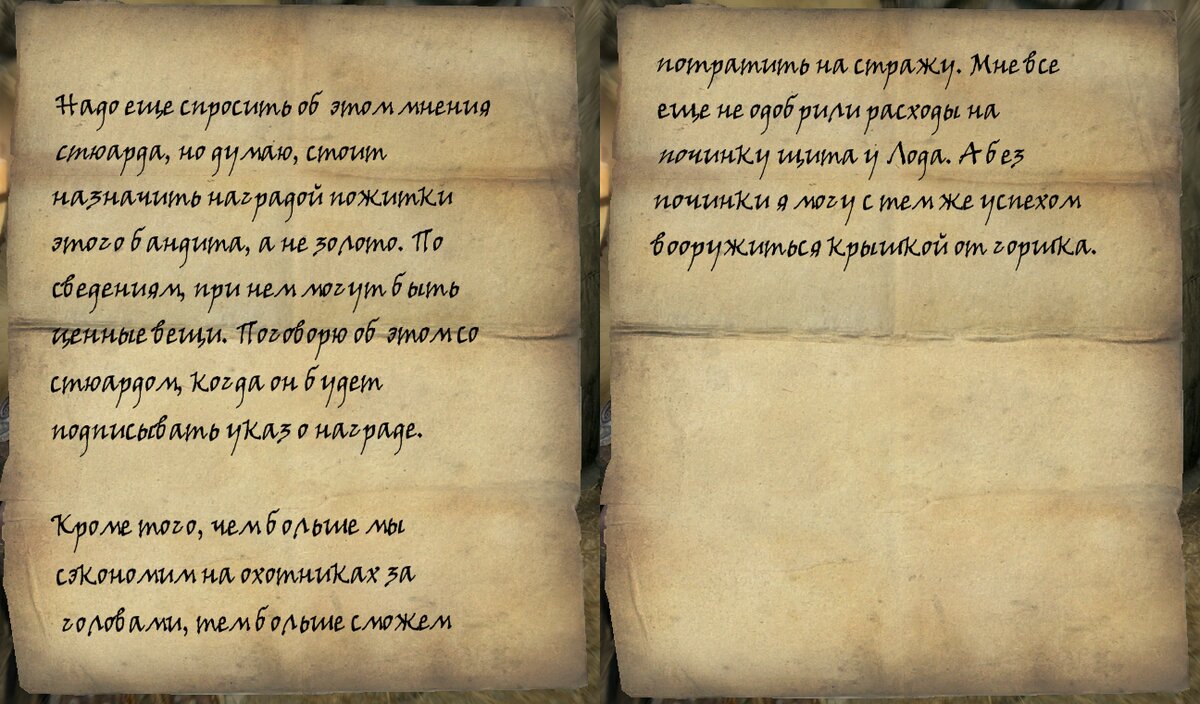 Надо еще спросить об этом мнения
стюарда, но думаю, стоит
назначить наградой пожитки
этого бандита, а не золото. По
сведениям, при нем могут быть
ценные вещи. Поговорю об этом со
стюардом, когда он будет
подписывать указ о награде.

Кроме того, чем больше мы
сэкономим на охотниках за
головами, тем больше сможем
потратить на стражу. Мне все
еще не одобрили расходы на
починку щита у Лода. А без
починки я могу с тем же успехом
вооружиться крышкой от горшка.